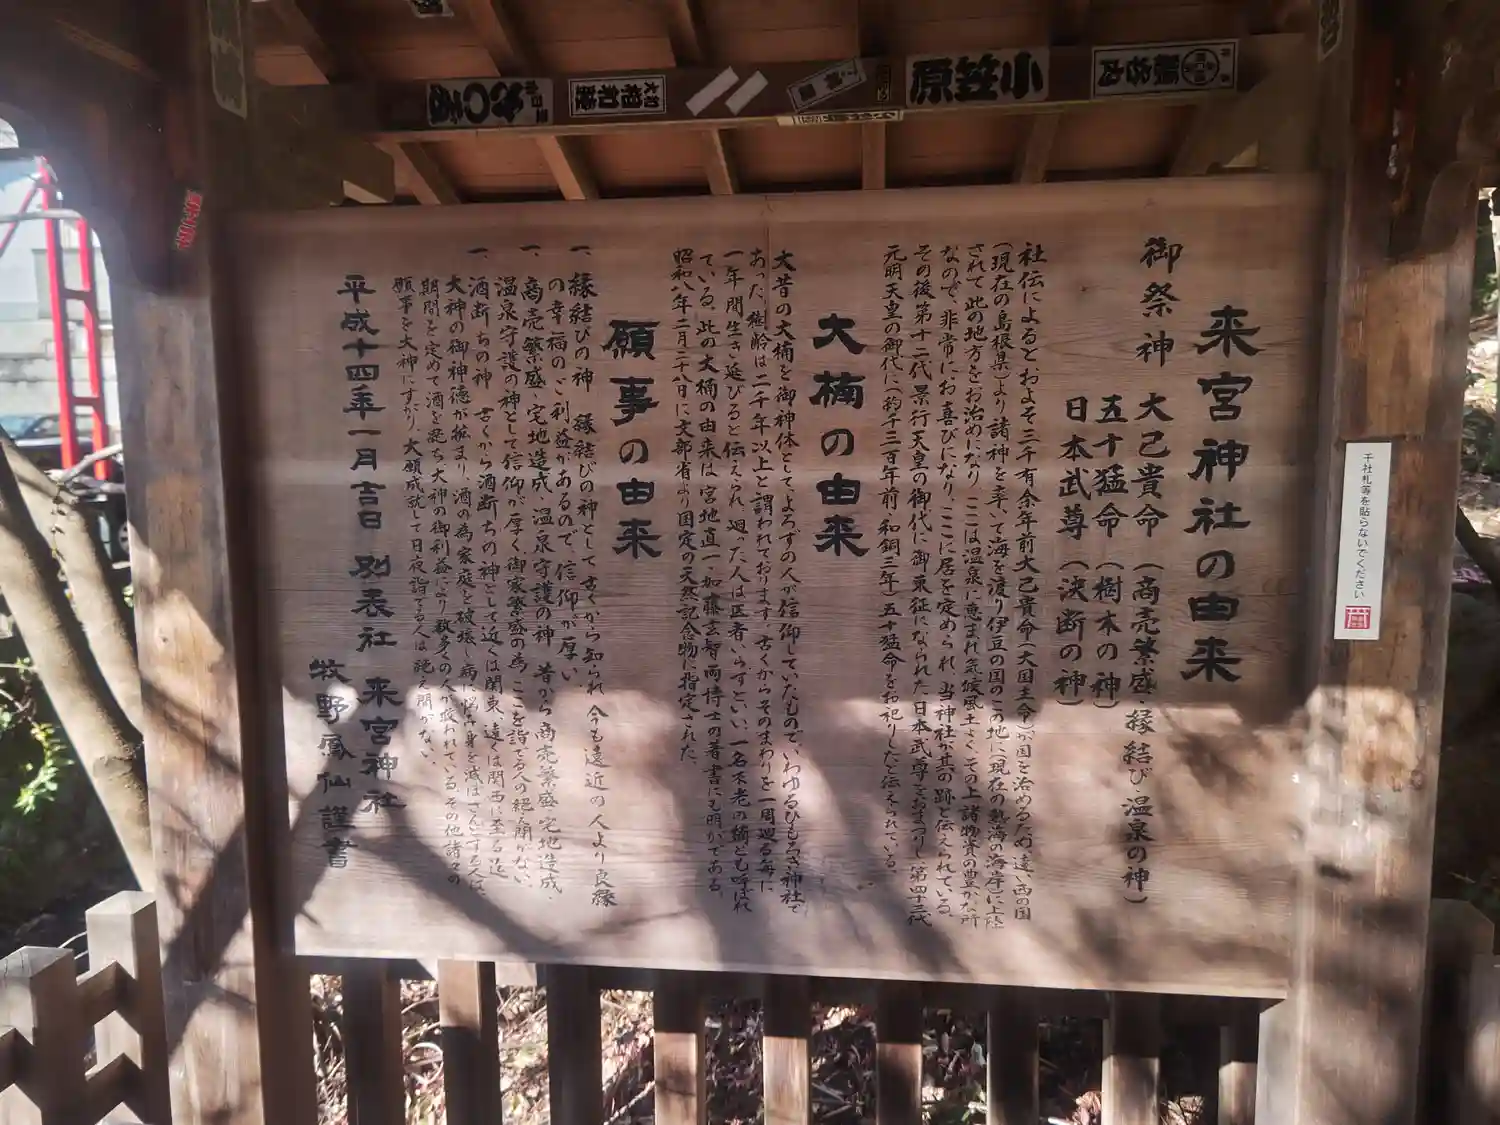 来宮神社の由来
御祭神 大己貴命(商売繁盛・縁結び・温泉の神)
五十猛命(樹木の神)
日本武尊(決断の神)
社伝によるとおよそ三千有余年前大己貴命(大国主命)が国を治めるため遠い西の国
(現在の島根県)より諸神を率いて海を渡り伊豆の国のこの地に(現在の熱海の海岸)に上陸
されて此の地方をお治めになり、ここは温泉に恵まれ気候風土よく、その上諸物資の豊かな所
なので、非常にお喜びになり、ここに居を定められ、当神社が其の跡と伝えられている。
その後第十二代景行天皇の御代に御東征になられた日本武尊をおまつりし第四十三代
元明天皇の御代に(約千三百年前和銅三年)五十猛命を和祀りしたと伝えられている。
大楠の由来
大昔の大楠を御神体として、よろずの人が信仰していたもので、いわゆるひもろぎ神社で
あった、樹齢は二千年以上と謂われております、古くからそのまわりを一周廻る毎に
一年間生き延びると伝えられ、廻った人は医者いらずといい、一名不老の楠とも呼ばれ
ている。此の大楠の由来は宮地直一・加藤玄智両博士の著書にも明かである。
昭和八年二月二十八日に文部省より国定の天然記念物に指定された。
願事の由来
一、縁結びの神 縁結びの神として古くから知られ今も遠近の人より良縁
の幸福のご利益があるので、信仰が厚い
一、商売繁盛・宅地造成・温泉守護の神 昔から商売繁盛宅地造成、
温泉守護の神として信仰が厚く、御家繁盛の為、ここを詣でる人の絶え間がない、
一、酒断ちの神 古くから酒断ちの神として近くは関東、遠くは関西に至る迄、
大神の御神徳が拡まり、酒の為家庭を破壊し病に悩み身を滅ぼさんとする人は
期間を定めて酒を絶ち大神の御利益により数多くの人が救われている、その他諸々の
願事を大神にすがり、大願成就して日夜詣でる人は絶え間がない。
平成十四年一月吉日 別表社 来宮神社
牧野鳳仙謹書
小笠原
千社札等を貼らないでください